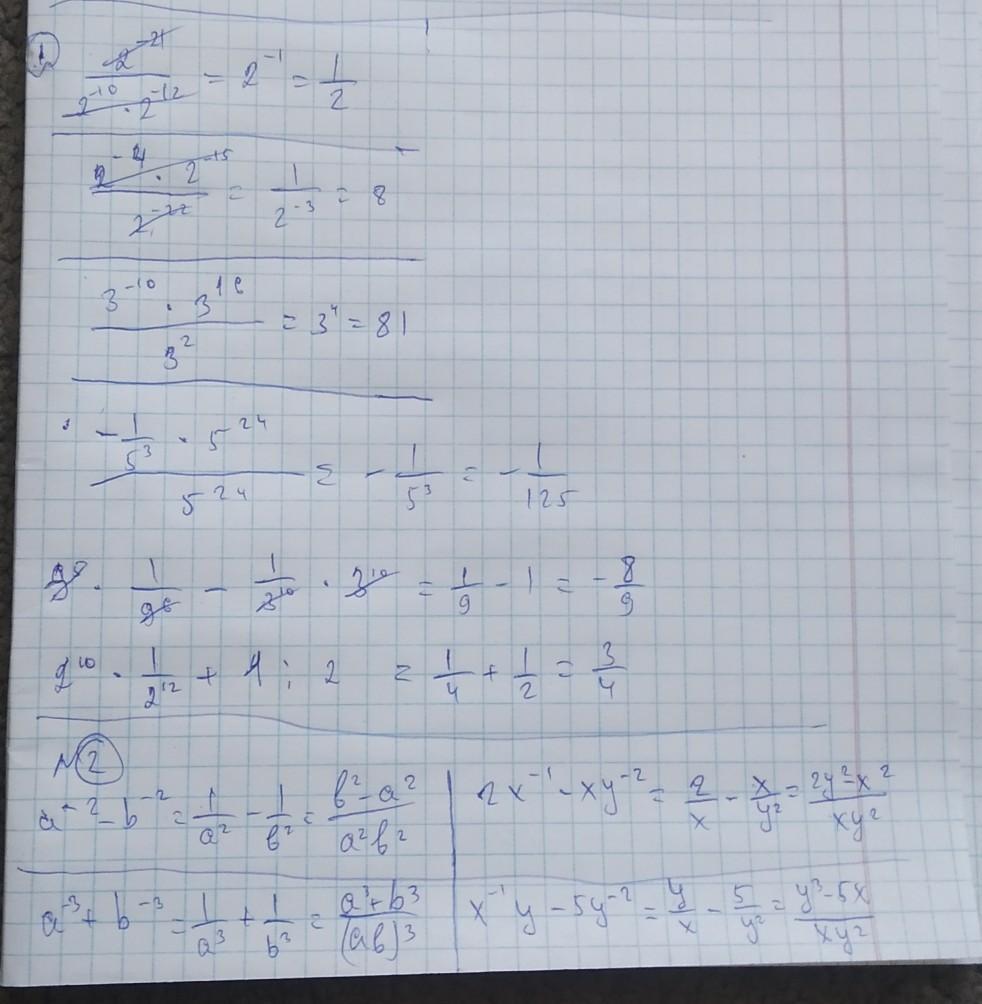 1
2⁻²¹ / (2⁻¹⁰ · 2⁻¹²) = 2⁻¹ = 1/2
(2⁻⁴ · 2⁻¹⁵) / 2⁻²² = 1/2⁻³ = 8
(3⁻¹⁰ · 3¹⁶) / 3² = 3⁴ = 81
(-1/5³ · 5²⁴) / 5²⁴ = -1/5³ = -1/125
· 1/ - 1/3¹⁰ · 3¹⁰ = 1/9 - 1 = -8/9
2¹⁰ · 1/2¹² + 1 : 2 = 1/4 + 1/2 = 3/4
N2
a⁻² - b⁻² = 1/a² - 1/b² = (b² - a²)/(a²b²)
2x⁻¹ - xy⁻² = 2/x - x/y² = (2y² - x²)/(xy²)
a⁻³ + b⁻³ = 1/a³ + 1/b³ = (a³ + b³)/(ab)³
x⁻¹y - 5y⁻² = y/x - 5/y² = (y³ - 5x)/(xy²)